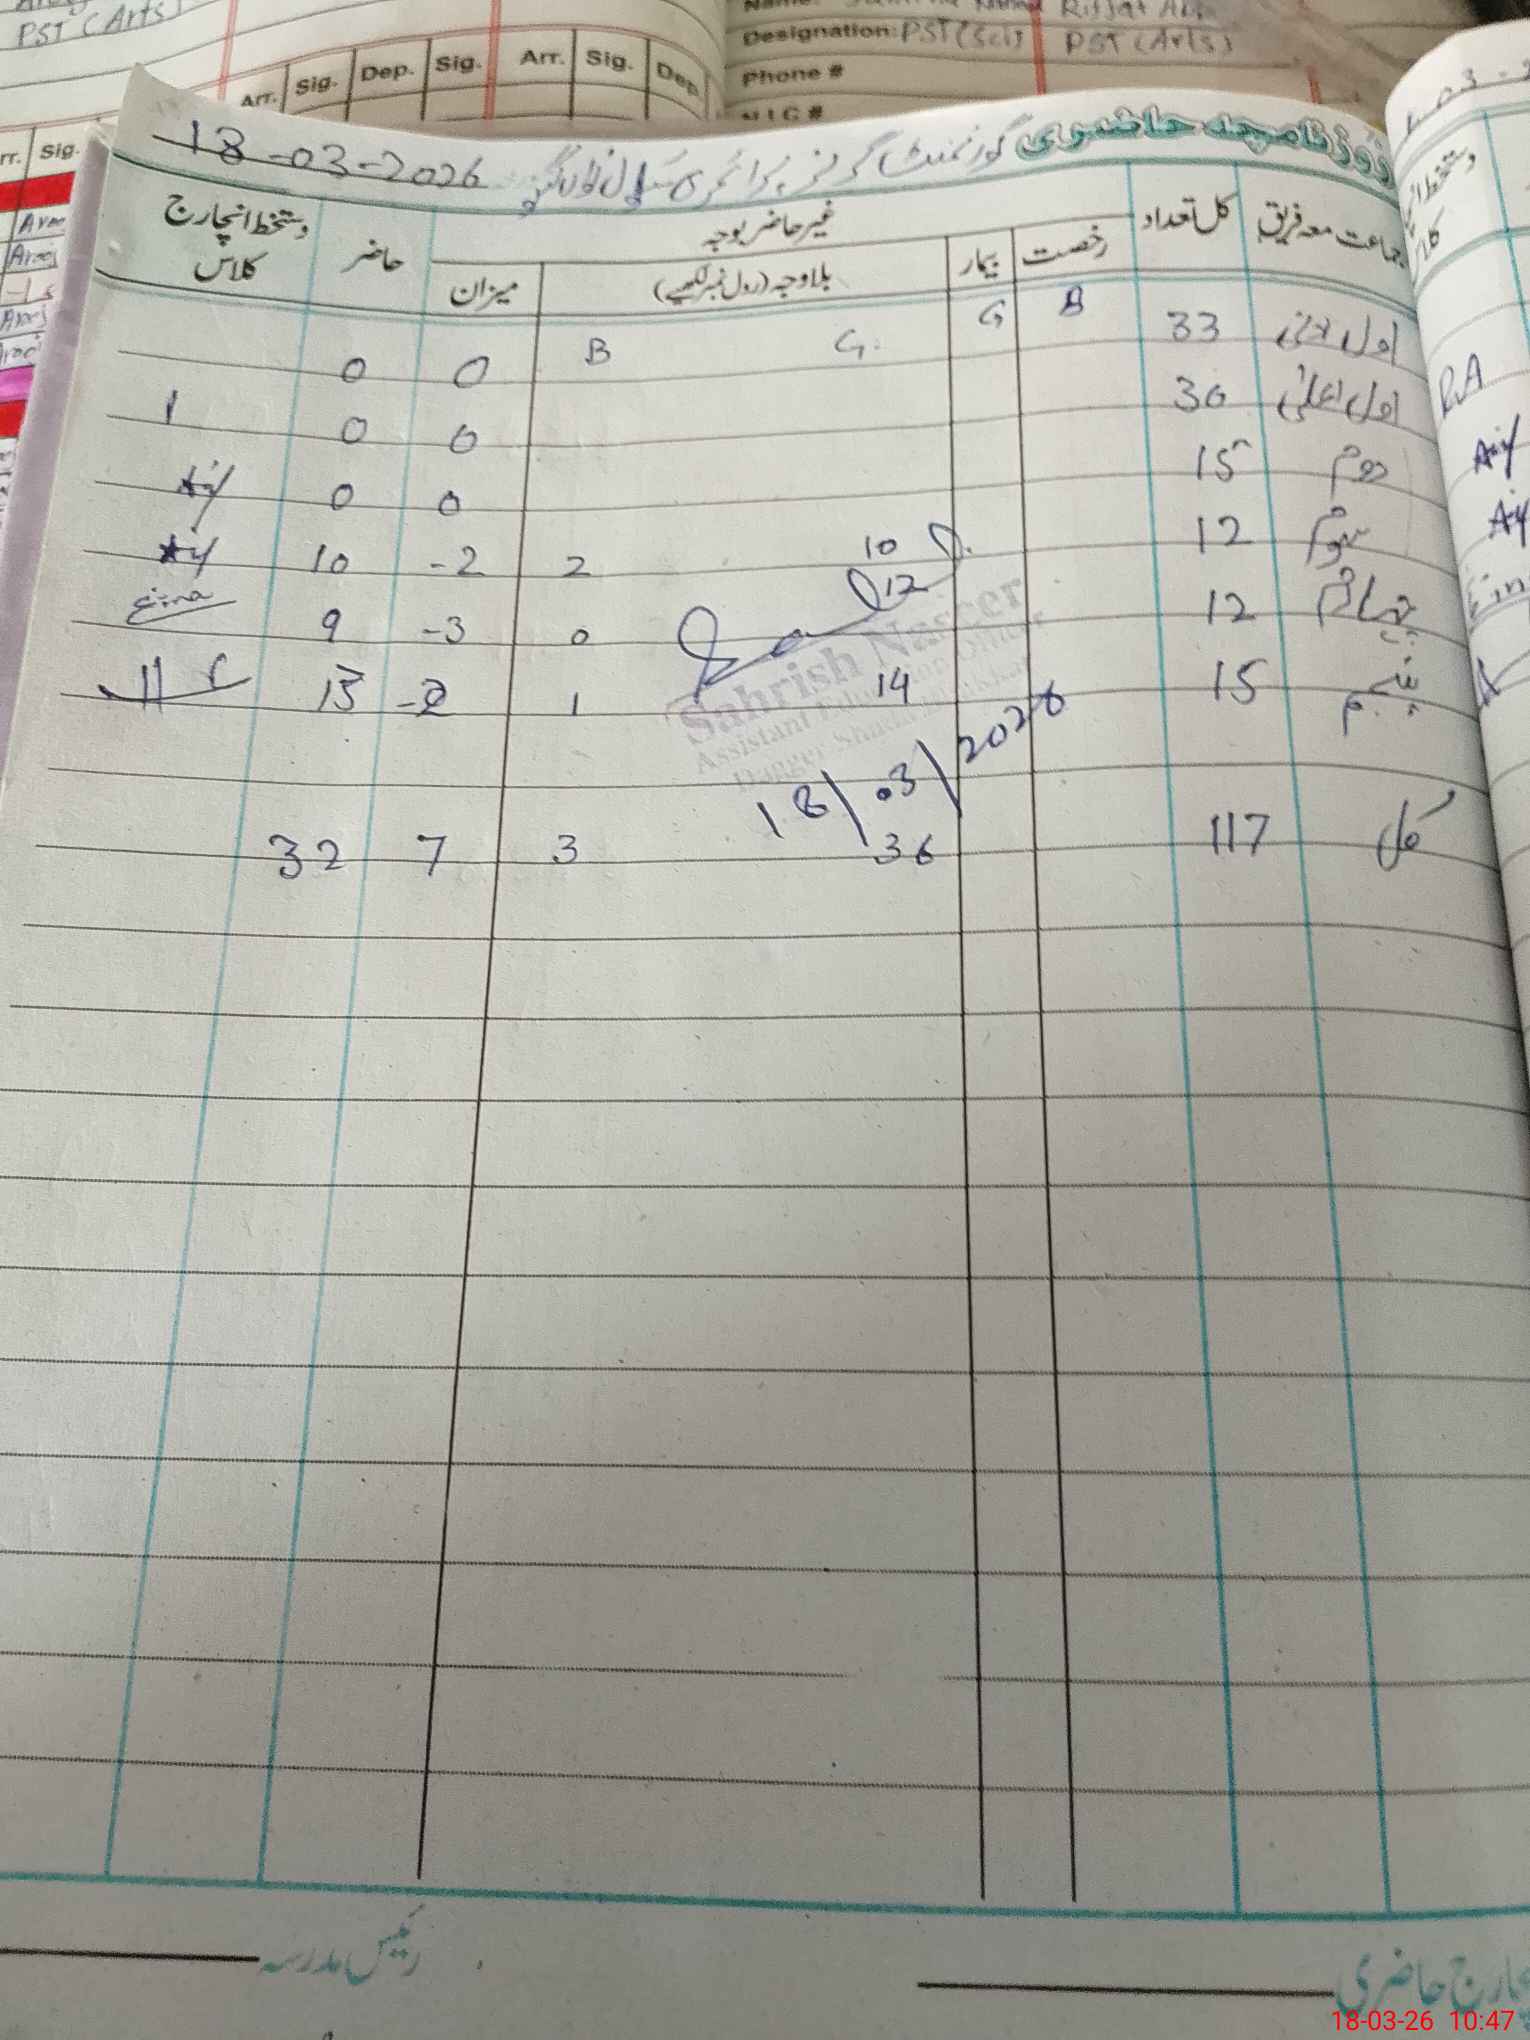 PST (Arts)
Arr. Sig. Dep. Sig. Arr. Sig. Dep.
Designation: PST (Sci) PST (Arts)
Phone #
N.I.C #
روزنامچہ حاضری گورنمنٹ گرلز پرائمری سکول 18-03-2026
جماعت معہ فریق کل تعداد غیر حاضر بوجہ حاضر دستخط انچارج کلاس
رخصت بیمار بلاوجہ (رول نمبر لکھیے) میزان
اول ادنیٰ 33 B G G. B 0 0
اول اعلیٰ 30 0 0
دوم 15 0 0
سوم 12 10 2 -2 10
چہارم 12 12 0 -3 9
پنجم 15 14 1 -2 13
Sahrish Naseer
Assistant Education Officer
18/03/2026
کل 117 36 3 7 32
انچارج حاضری
رئیس مدرسہ
18-03-26 10:47